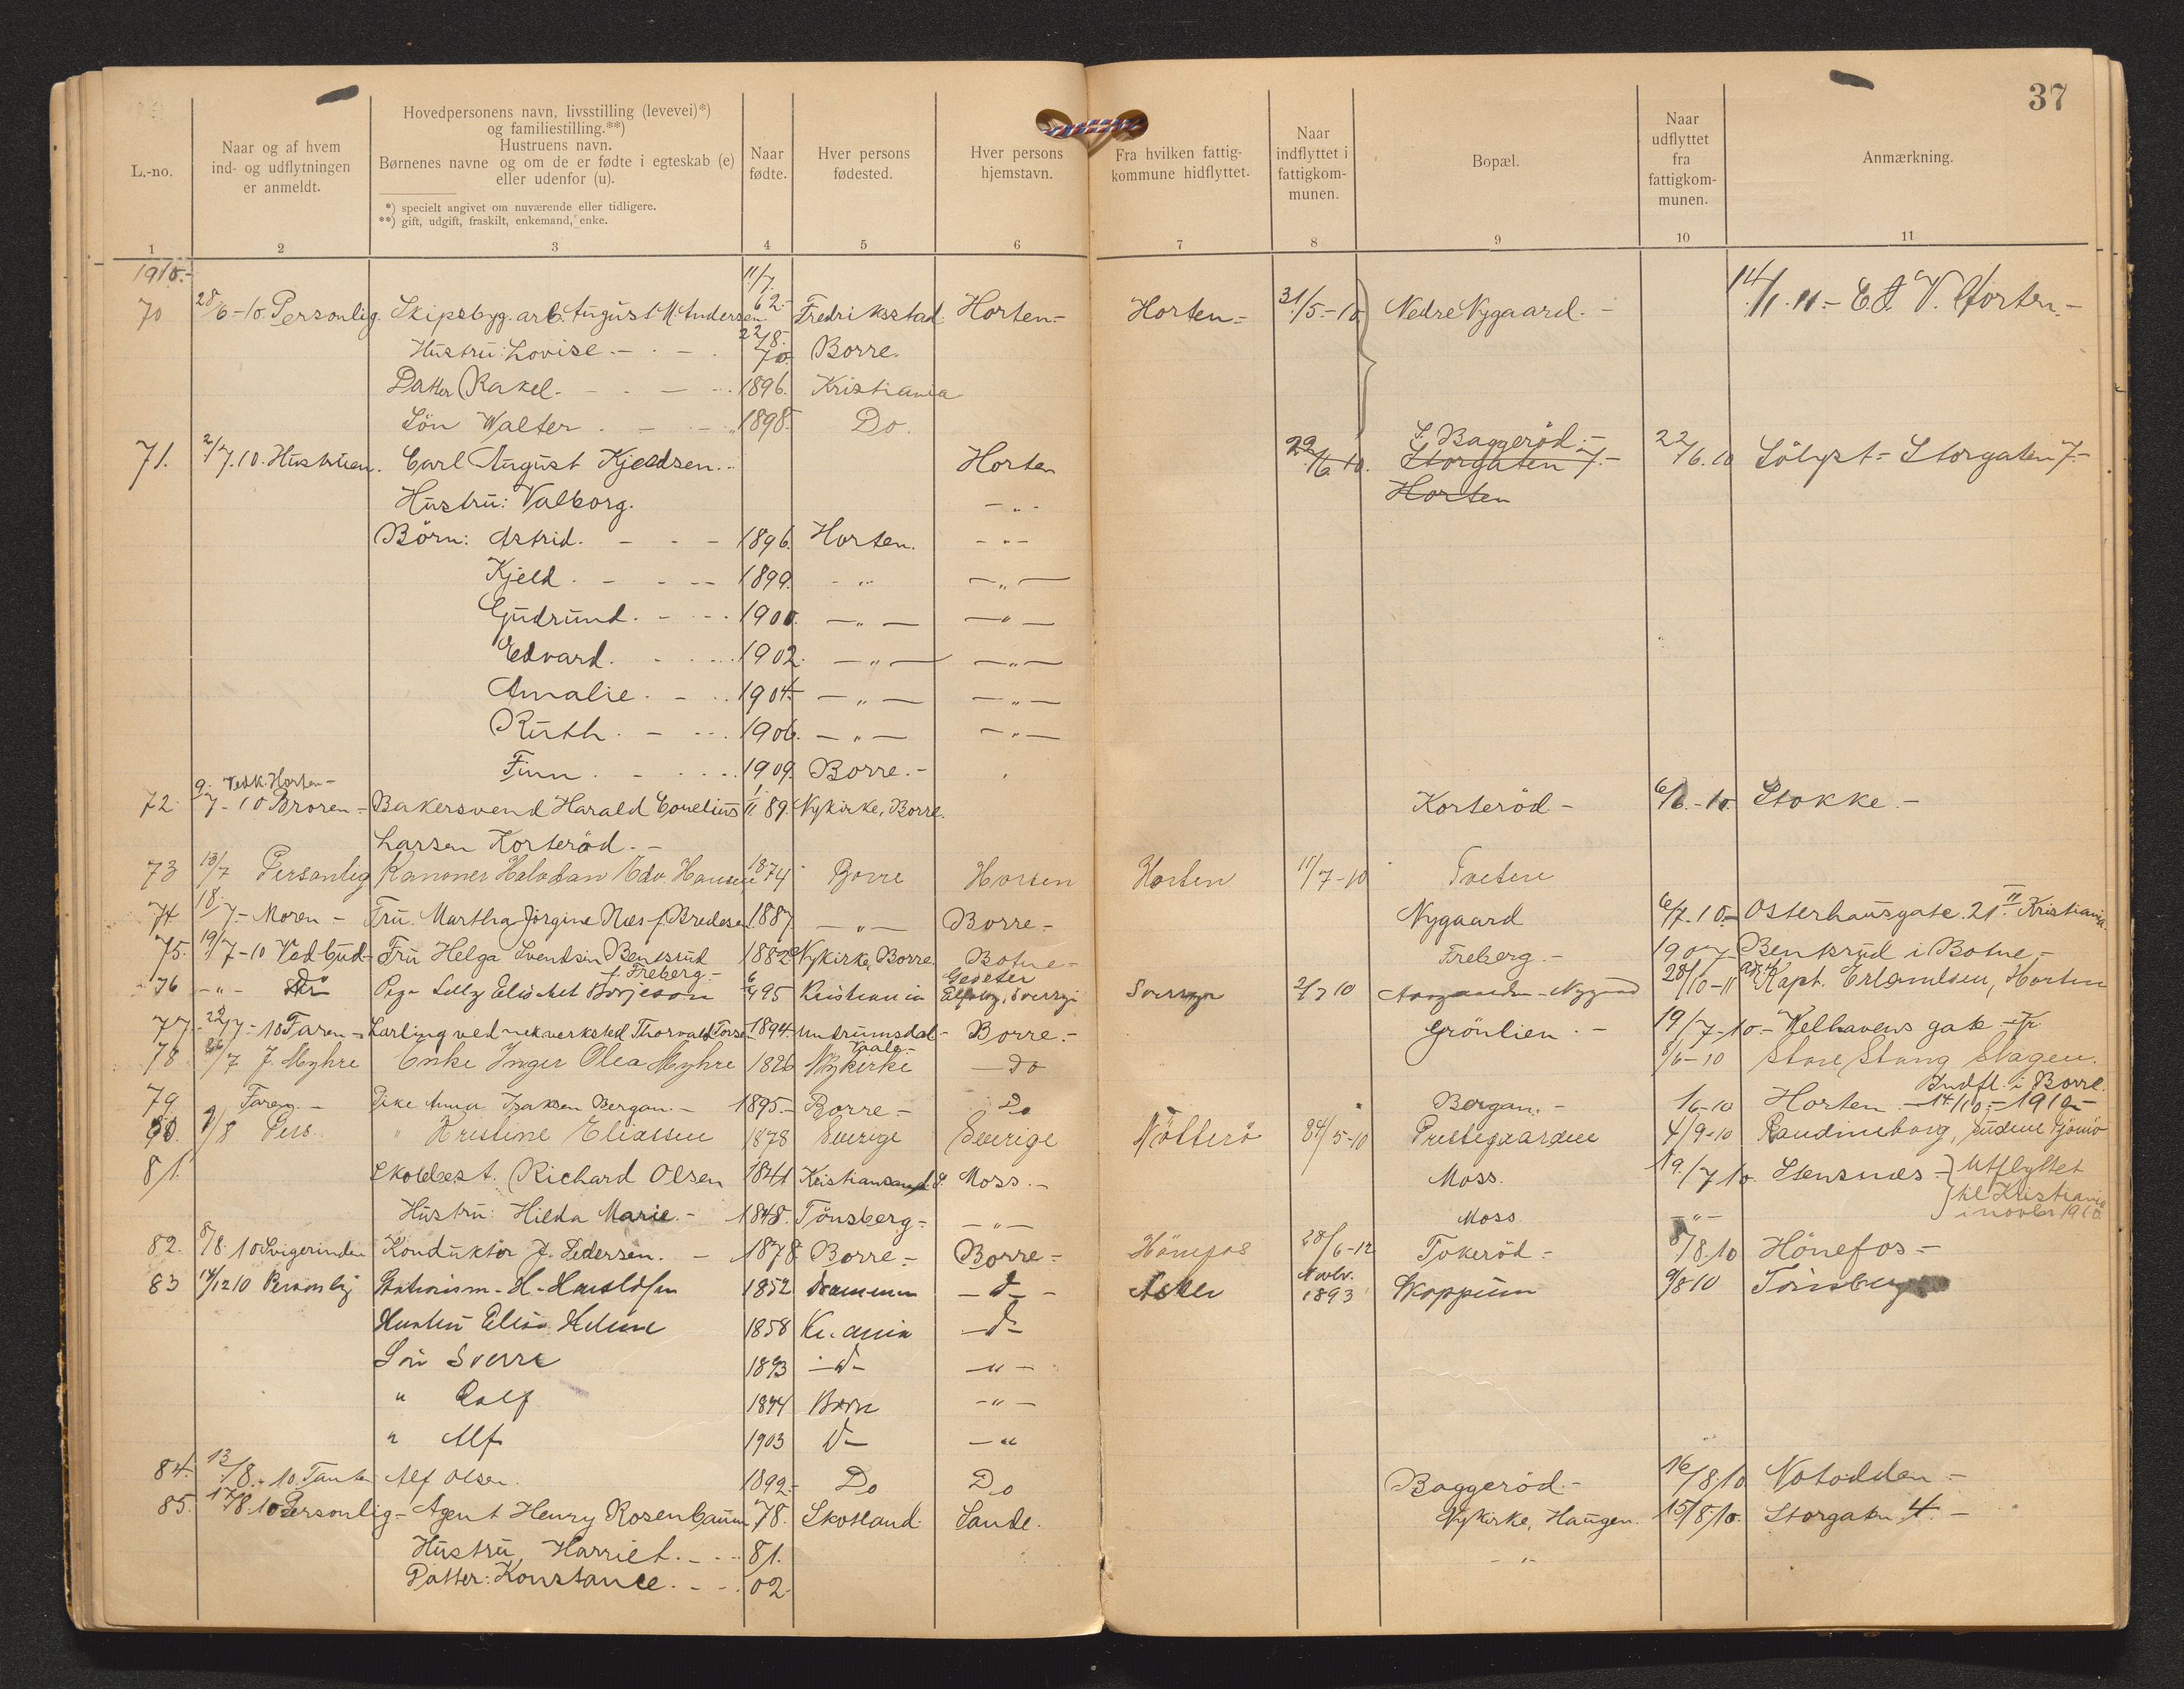 37
L.-no.
Naar og af hvem ind- og udflytningen er anmeldt.
Hovedpersonens navn, livsstilling (levevei)*) og familiestilling.**)
Hustruens navn.
Børnenes navne og om de er fødte i egteskab (e) eller udenfor (u).
*) specielt angivet om nuværende eller tidligere.
**) gift, udgift, fraskilt, enkemand, enke.
Naar fødte.
Hver persons fødested.
Hver persons hjemstavn.
Fra hvilken fattigkommune hidflyttet.
Naar indflyttet i fattigkommunen.
Bopæl.
Naar udflyttet fra fattigkommunen.
Anmærkning.
1 2 3 4 5 6 7 8 9 10 11
1910.-
70 28/6-10. Personlig. Skipsbyg. arb. August M. Andersen 11/7. 62.- Fredriksstad Horten.- Horten.- 31/5.-10 Nedre Nygaard.- 14/1.11.- E.F. V. Horten.-
Hustru: Lovise.- 22/8.- 70. Borre.
Datter Rakel. 1896. Kristiania
Sön Walter 1898. Do.
71. 2/7.10. Hustruen. Carl August Kjeldsen.- Horten 22/6 10. S. Baggeröd.- Storgaten 7.- 22/6.10 Sölyst.- Storgaten 7.-
Hustru: Valborg. -"- Horten
Börn: Astrid. 1896. Horten. -"-
Kjeld. 1899. -"- -"-
Gudrund. 1900. -"- -"-
Edvard. 1902. -"- -"-
Amalie. 1904. -"- -"-
Ruth. 1906. -"- -"-
Finn. 1909. Borre.-
72. 9/7-10 Vedk. Horten- Broren- Bakersvend Harald Cornelius 1/11 89. Nykirke, Borre. Korteröd- 6/6.-10. Stokke.-
Larsen Korteröd.-
73 13/7 Personlig Kanoner Halvdan Edv. Hansen 1874 Borre Horten Horten 11/7-10 Tveten
74 18/7- Moren- Fru Martha Jörgine Næs f. Bredesen 1887. -"- Borre- Nygaard 6/7.10- Osterhausgate 21 II Kristiania.
75. 19/7-10 Ved bud- Fru Helga Svendsen Bentsrud f. Freberg.- 1882 Nykirke, Borre. Botne- Freberg.- 1907 Bentsrud i Botne-
76 -"- Pige Lilly Elisabet Borjeson 6/4 95 Kristiania Sverige 2/7 10 Nygaard 28/10-11 Kapt. Erlandsen, Horten
77.- 22/7-10 Faren- Lærling ved mek. verksted Thorvald 1894. Undrumsdal- Vaale.- Borre.- Grönlien.- 19/7-10.- Welhavens gate
78 26/7 J. Myhre Enke Inger Olea Myhre 1826 Nykirke -Do 8/6-10 Store Stang Slagen.
79 Faren.- Pike Anna Isaksen Bergan.- 1895.- Borre- Do Bergan.- 1/6-10 Horten.- Indfl. i Borre. 14/10.-1910-
80. 9/8 Pers. " Kristine Eliassen 1878 Sverige Sverige Nötterö 24/5-10 Prestegaarden 4/9-10 Randineborg, søndre Tjömö
81. Skolebest. Richard Olsen 1841 Kristiansand S. Moss.- Moss. 19/7 10. Stensnes- Utflyttet
Hustru: Hilda Marie.- 1848. Tönsberg- -"- Moss -"- til Kristiania i novbr 1910
82. 8/8.10 Svigerinden Konduktör J. Pedersen.- 1878 Borre- Borre- Hönefos 28/6-12 Tokeröd- 8/8.10 Hönefos-
83 14/12 10 Personlig Stationsm. H. 1852 Drammen -d- Asker Novbr. 1893 Skoppum 9/8 10 Tönsberg
Hustru Elise 1858 Kr.ania -d-
Sön Sverre 1893 -d- -"-
" Rolf 1894 Borre -"-
" Alf 1903 d- -"-
84. 13/8.-10. Tanten Alf Olsen. 1892.- Do Do Baggeröd.- 16/8 10 Notodden-
85. 17/8 10 Personlig- Agent Henry Rosenbaum 78. Skotland. Sande. Nykirke, Haugen. 15/8.10. Storgaten 4.-
Hustru, Harriet. 81. -"-
Datter: Konstance. 02.